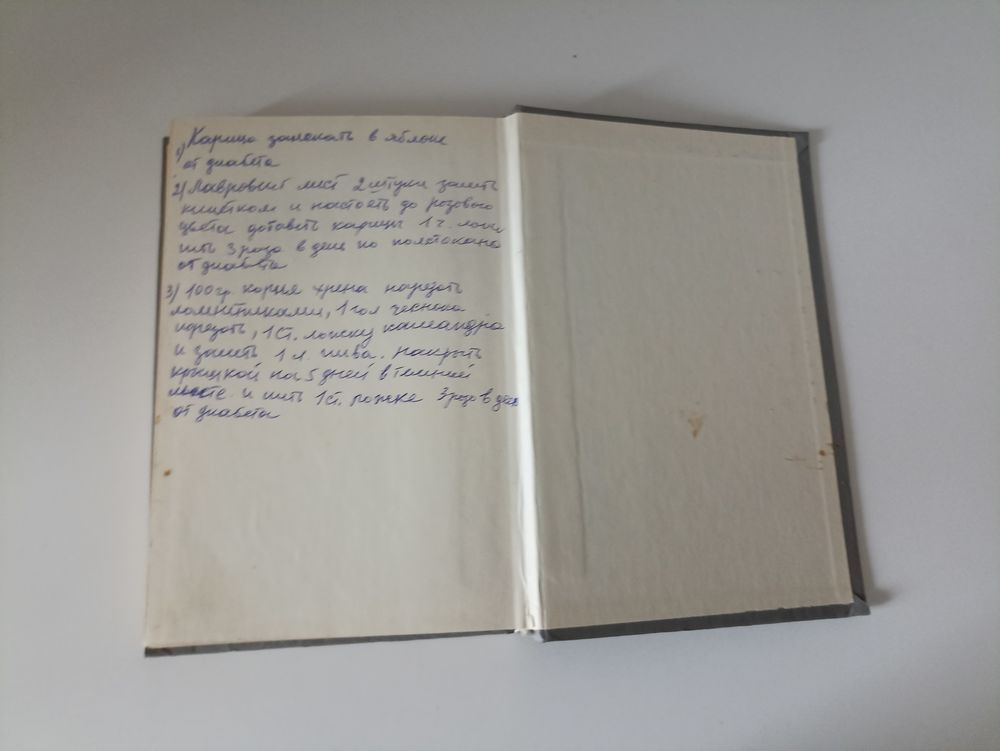 1) Карица запекать в яблоке
от диабета
2) Лавровый лист 2 штуки залить
кипятком и настоять до розового
цвета добавить карицы 1 ч. лож
пить 3 раза в день по полстакана
от диабета
3) 100 гр. корня хрена нарезать
ломтиками, 1 гол чеснока
порезать, 1 ст. ложку
и залить 1 л. пива. накрыть
крышкой на 5 дней в темней
месте и пить 1 ст. ложке 3 раза в день
от диабета